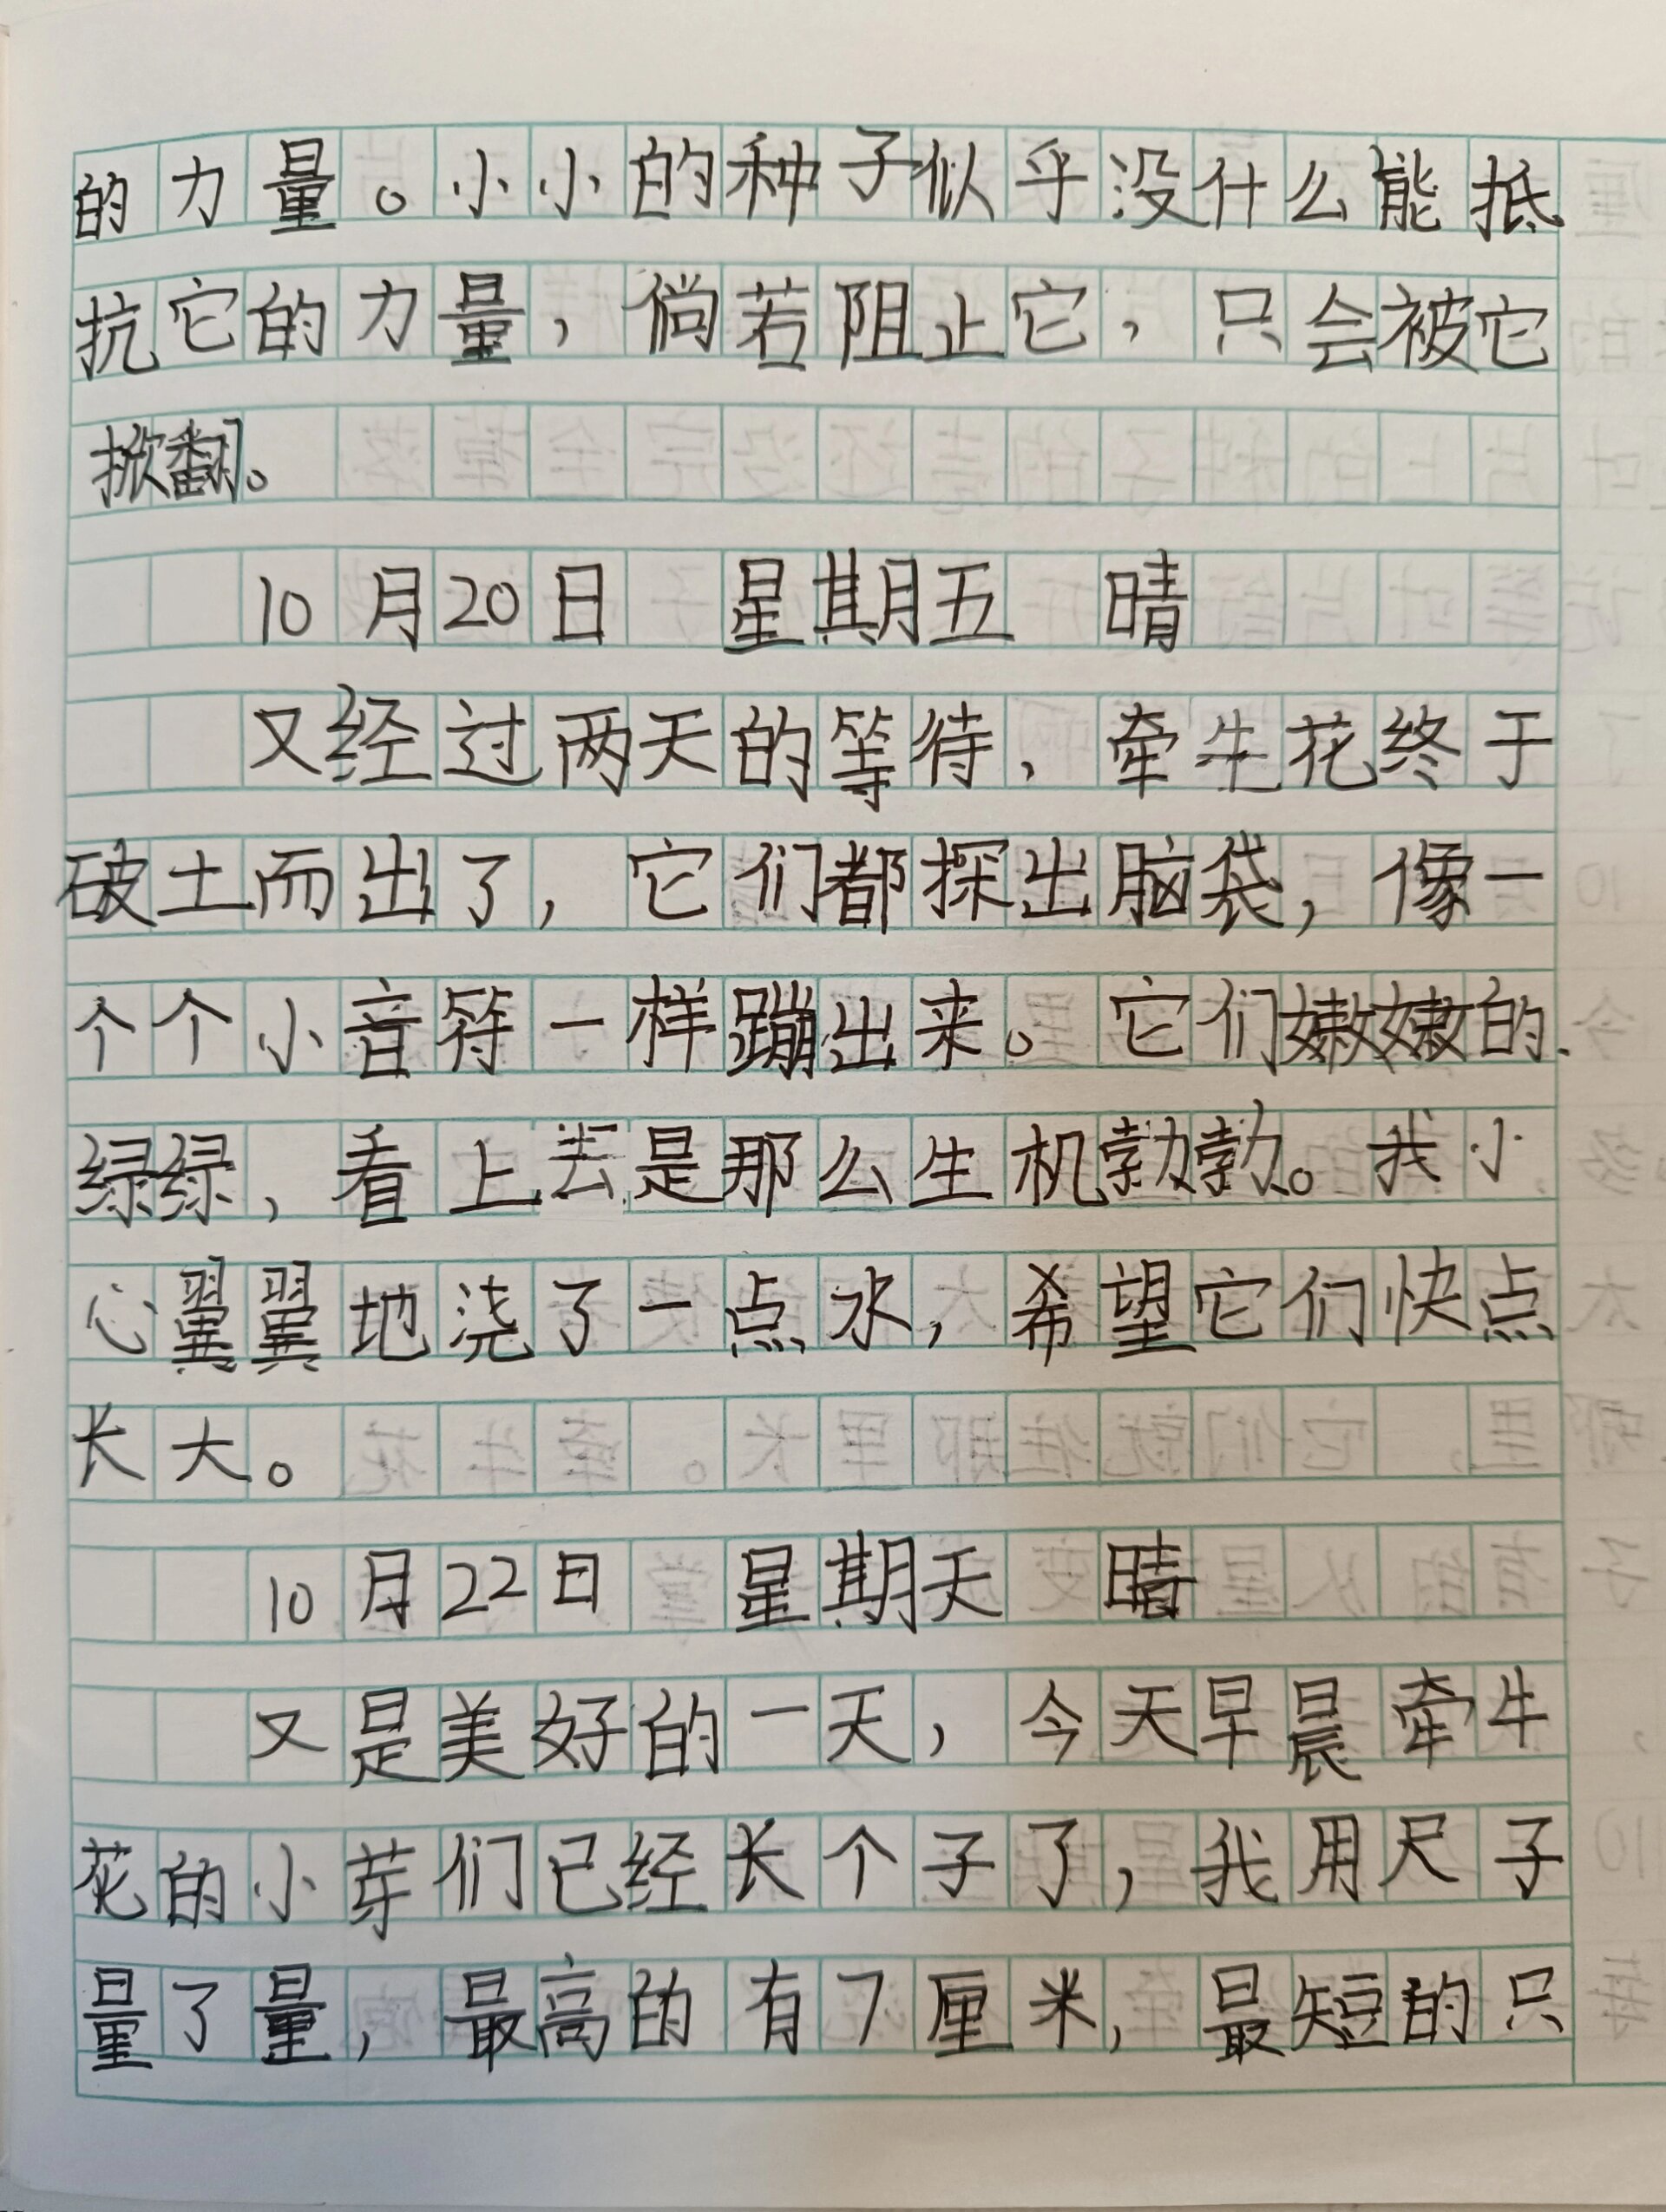 的力量。小小的种子似乎没什么能抵
抗它的力量，倘若阻止它，只会被它
掀翻。
10月20日 星期五 晴
又经过两天的等待，牵牛花终于
破土而出了，它们都探出脑袋，像一
个个小音符一样蹦出来。它们嫩嫩的、
绿绿，看上去是那么生机勃勃。我小
心翼翼地浇了一点水，希望它们快点
长大。
10月22日 星期天 晴
又是美好的一天，今天早晨牵牛
花的小芽们已经长个子了，我用尺子
量了量，最高的有7厘米，最短的只